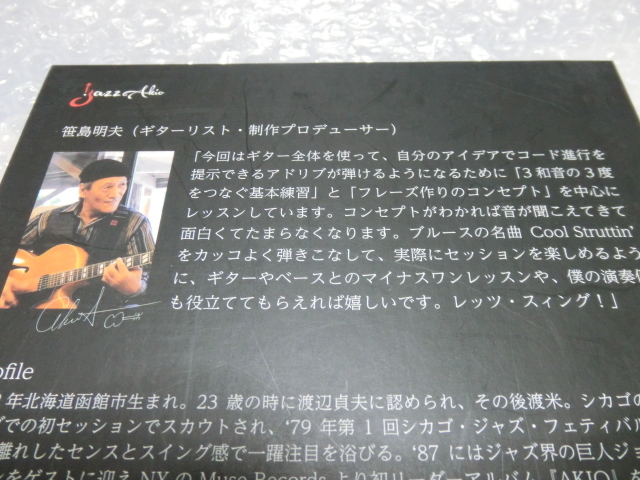 Jazz Akio
笹島明夫（ギターリスト・制作プロデューサー）
「今回はギター全体を使って、自分のアイデアでコード進行を
提示できるアドリブが弾けるようになるために「3和音の3度
をつなぐ基本練習」と「フレーズ作りのコンセプト」を中心に
レッスンしています。コンセプトがわかれば音が聞こえてきて
面白くてたまらなくなります。ブルースの名曲 Cool Struttin'
をカッコよく弾きこなして、実際にセッションを楽しめるよう
に、ギターやベースとのマイナスワンレッスンや、僕の演奏
も役立ててもらえれば嬉しいです。レッツ・スィング！」
ofile
年北海道函館市生まれ。23 歳の時に渡辺貞夫に認められ、その後渡米。シカゴの
での初セッションでスカウトされ、'79 年第 1 回シカゴ・ジャズ・フェティバル
離れしたセンスとスイング感で一躍注目を浴びる。'87 にはジャズ界の巨人ジョ
をゲストに迎え NY の Muse Records より初リーダーアルバム『AKIO』を